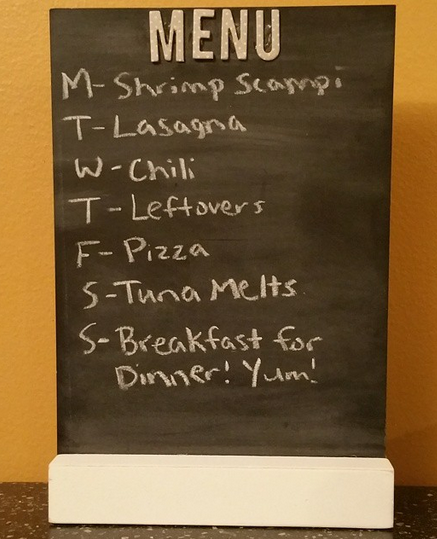 MENU
M-Shrimp Scampi
T-Lasagna
W-Chili
T-Leftovers
F-Pizza
S-Tuna Melts
S-Breakfast for
Dinner! Yum!